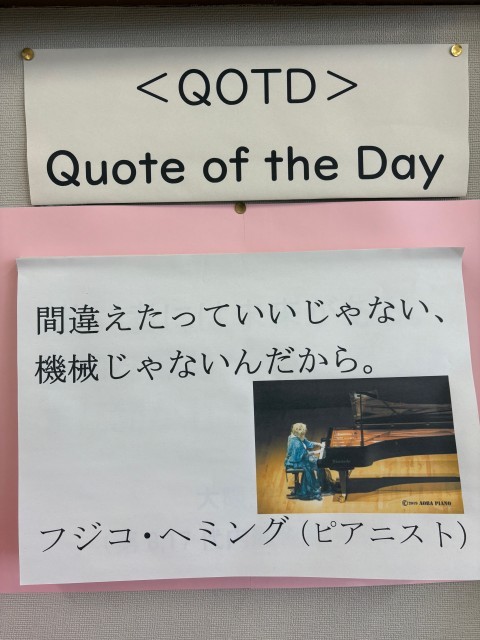 ＜QOTD＞
Quote of the Day
間違えたっていいじゃない、
機械じゃないんだから。
フジコ・ヘミング（ピアニスト）